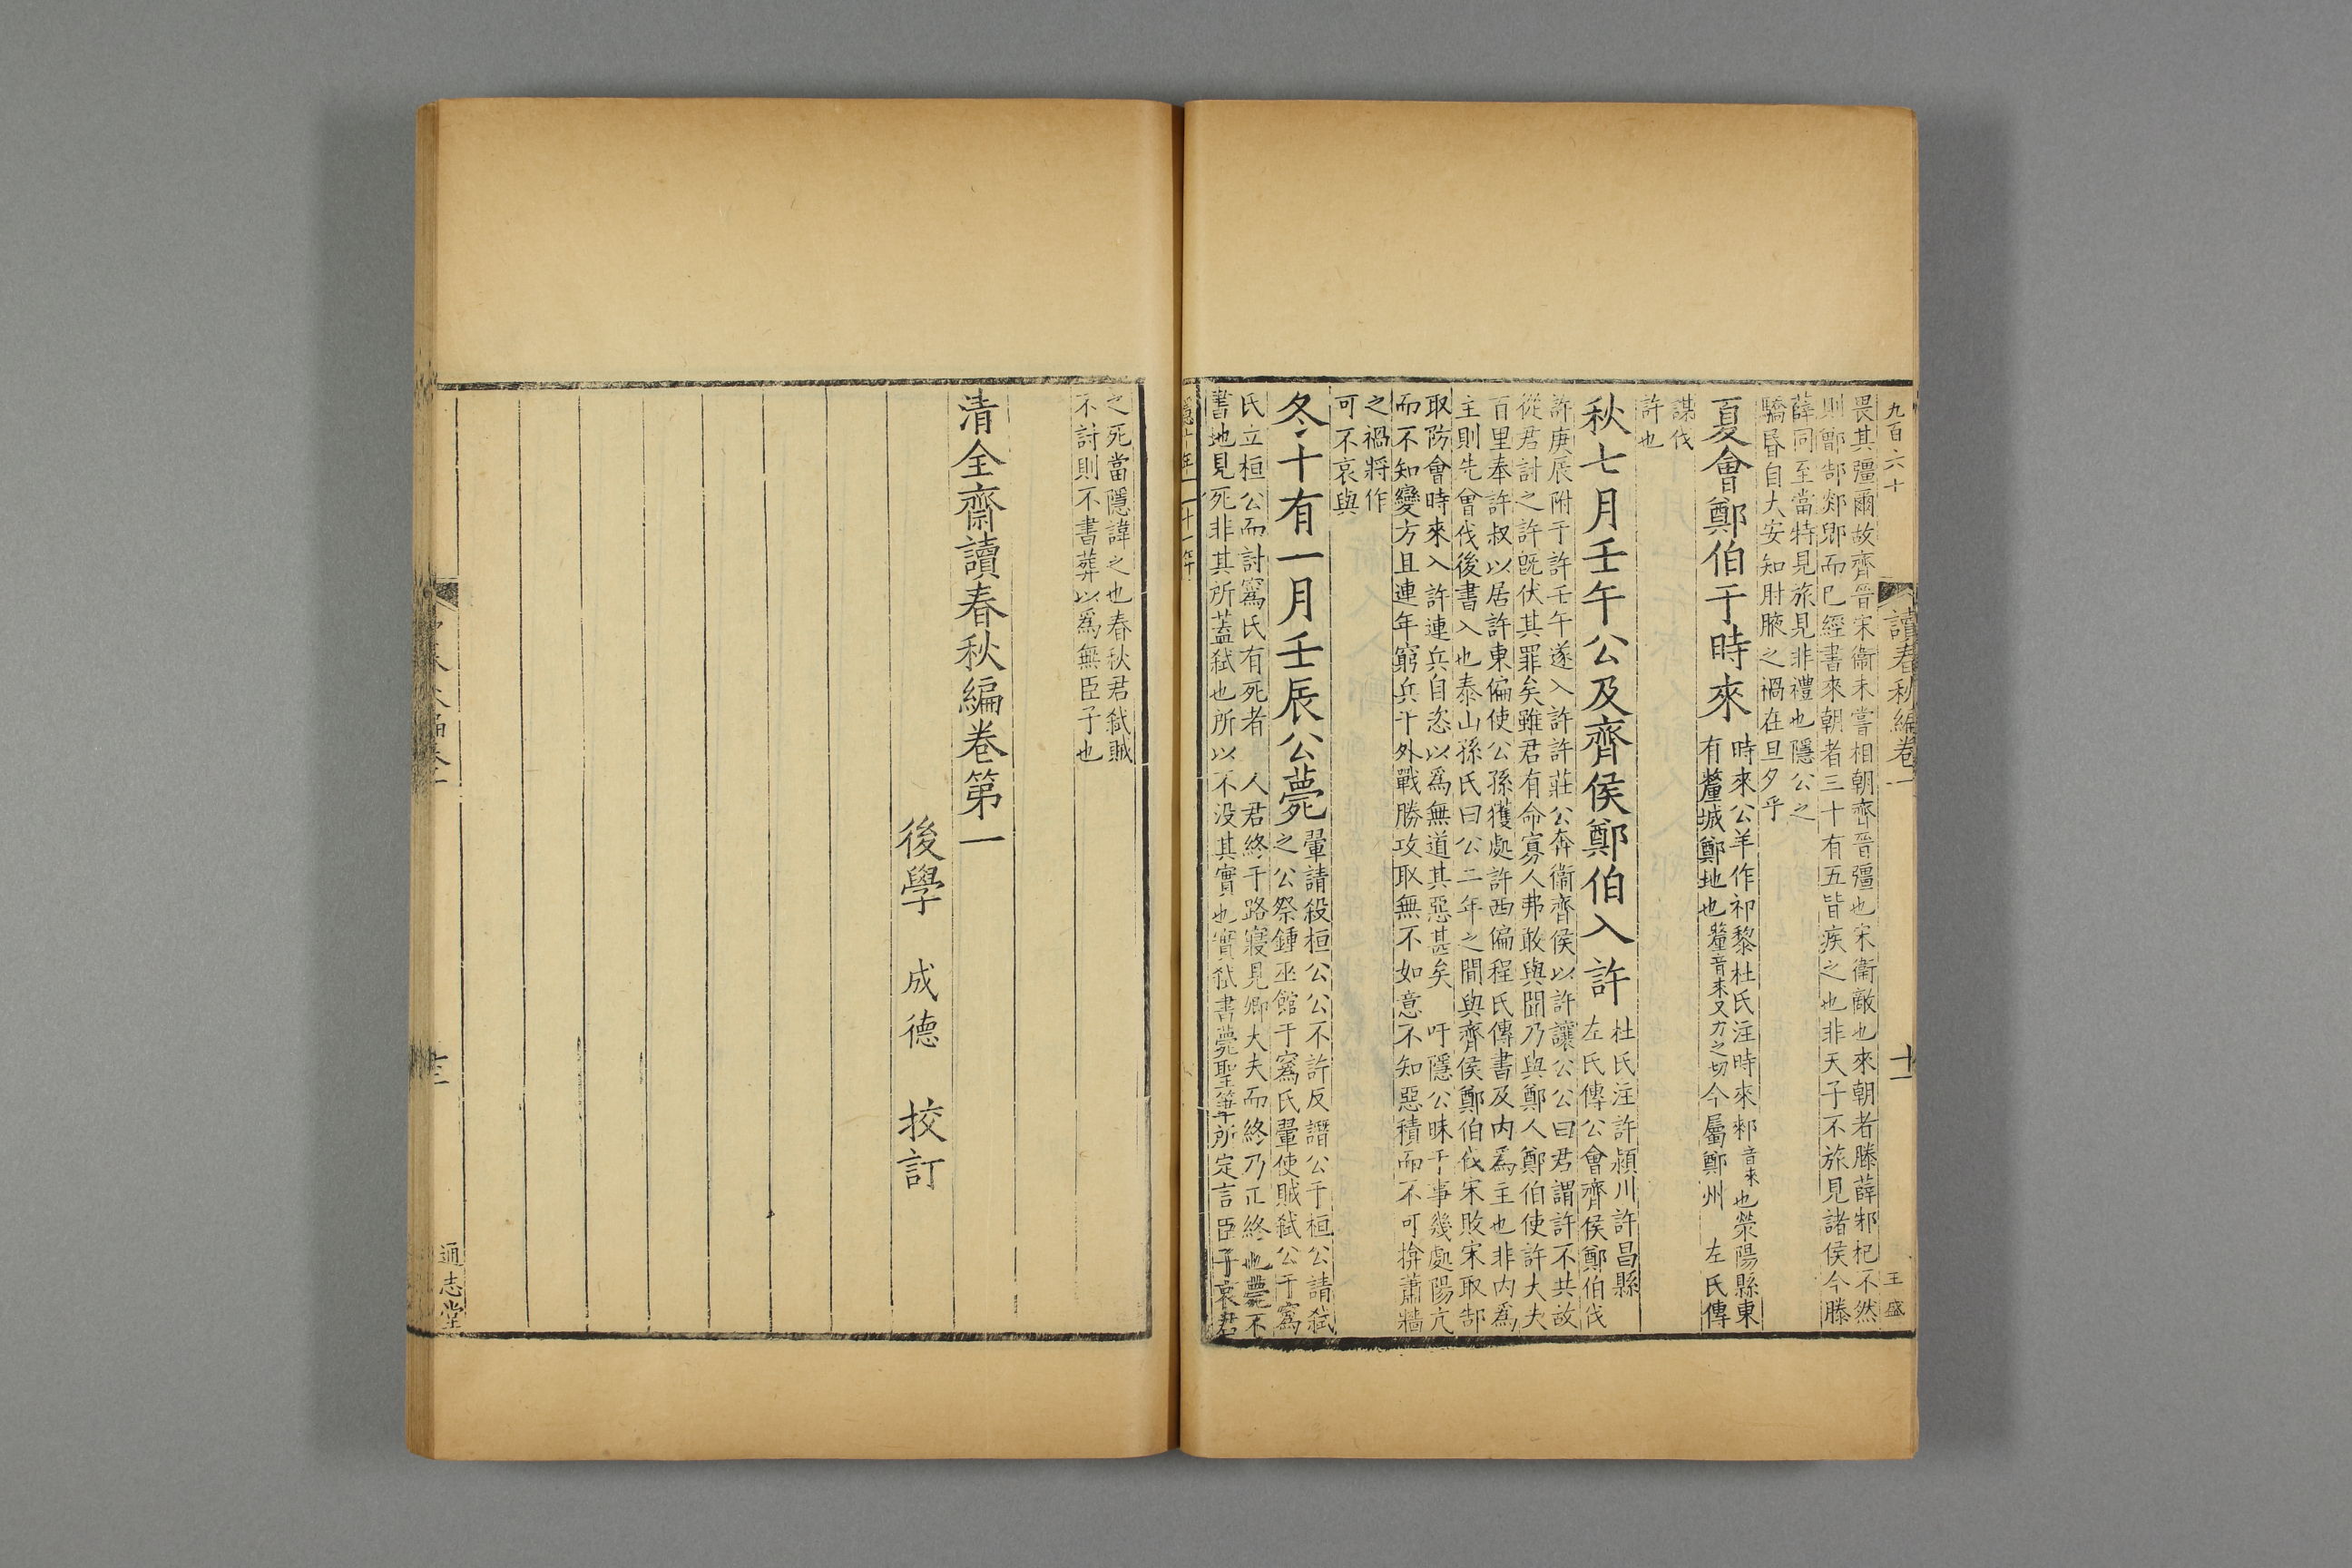 九百六十
讀春秋編卷一
十一
王盛
畏其彊爾故齊晉宋衞未嘗相朝齊晉彊也宋衞敵也來朝者滕薛邾杞不然
則鄫郜郯郳而已經書來朝者三十有五皆疾之也非天子不旅見諸侯今滕
薛同至當特見旅見非禮也隱公之
驕昬自大安知肘腋之禍在旦夕乎
夏會鄭伯于時來
時來公羊作祁黎杜氏注時來郲音來也滎陽縣東
有釐城鄭地也釐音來又力之切今屬鄭州 左氏傳
謀伐
許也
秋七月壬午公及齊侯鄭伯入許
杜氏注許潁川許昌縣
左氏傳公會齊侯鄭伯伐
許庚辰附于許壬午遂入許許莊公奔衞齊侯以許讓公公曰君謂許不共故
從君討之許旣伏其罪矣雖君有命寡人弗敢與聞乃與鄭人鄭伯使許大夫
百里奉許叔以居許東偏使公孫獲處許西偏程氏傳書及内爲主也非内爲
主則先會伐後書入也泰山孫氏曰公二年之間與齊侯鄭伯伐宋敗宋取郜
取防會時來入許連兵自恣以爲無道其惡甚矣 吁隱公昧于事幾處陽亢
而不知變方且連年窮兵于外戰勝攻取無不如意不知惡積而不可揜蕭牆
之禍將作
可不哀與
冬十有一月壬辰公薨
翬請殺桓公公不許反譖公于桓公請弑
之公祭鍾巫館于寪氏翬使賊弑公于寪
氏立桓公而討寪氏有死者 人君終于路寢見卿大夫而終乃正終也薨不
書地見死非其所蓋弑也所以不没其實也實弑書薨聖筆所定言臣子哀君
隱十年 十一年
之死當隱諱之也春秋君弑賊
不討則不書葬以爲無臣子也
清全齋讀春秋編卷第一
後學 成德 挍訂
通志堂